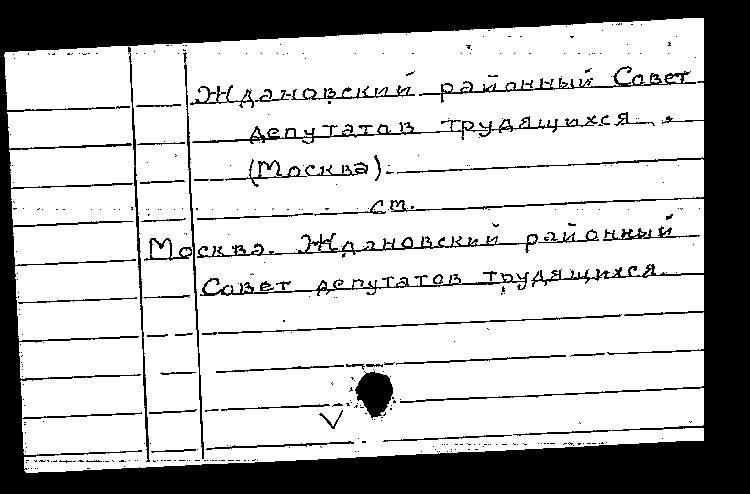 Ждановский районный Совет
депутатов трудящихся.
(Москва).
см.
Москва. Ждановский районный
Совет депутатов трудящихся.